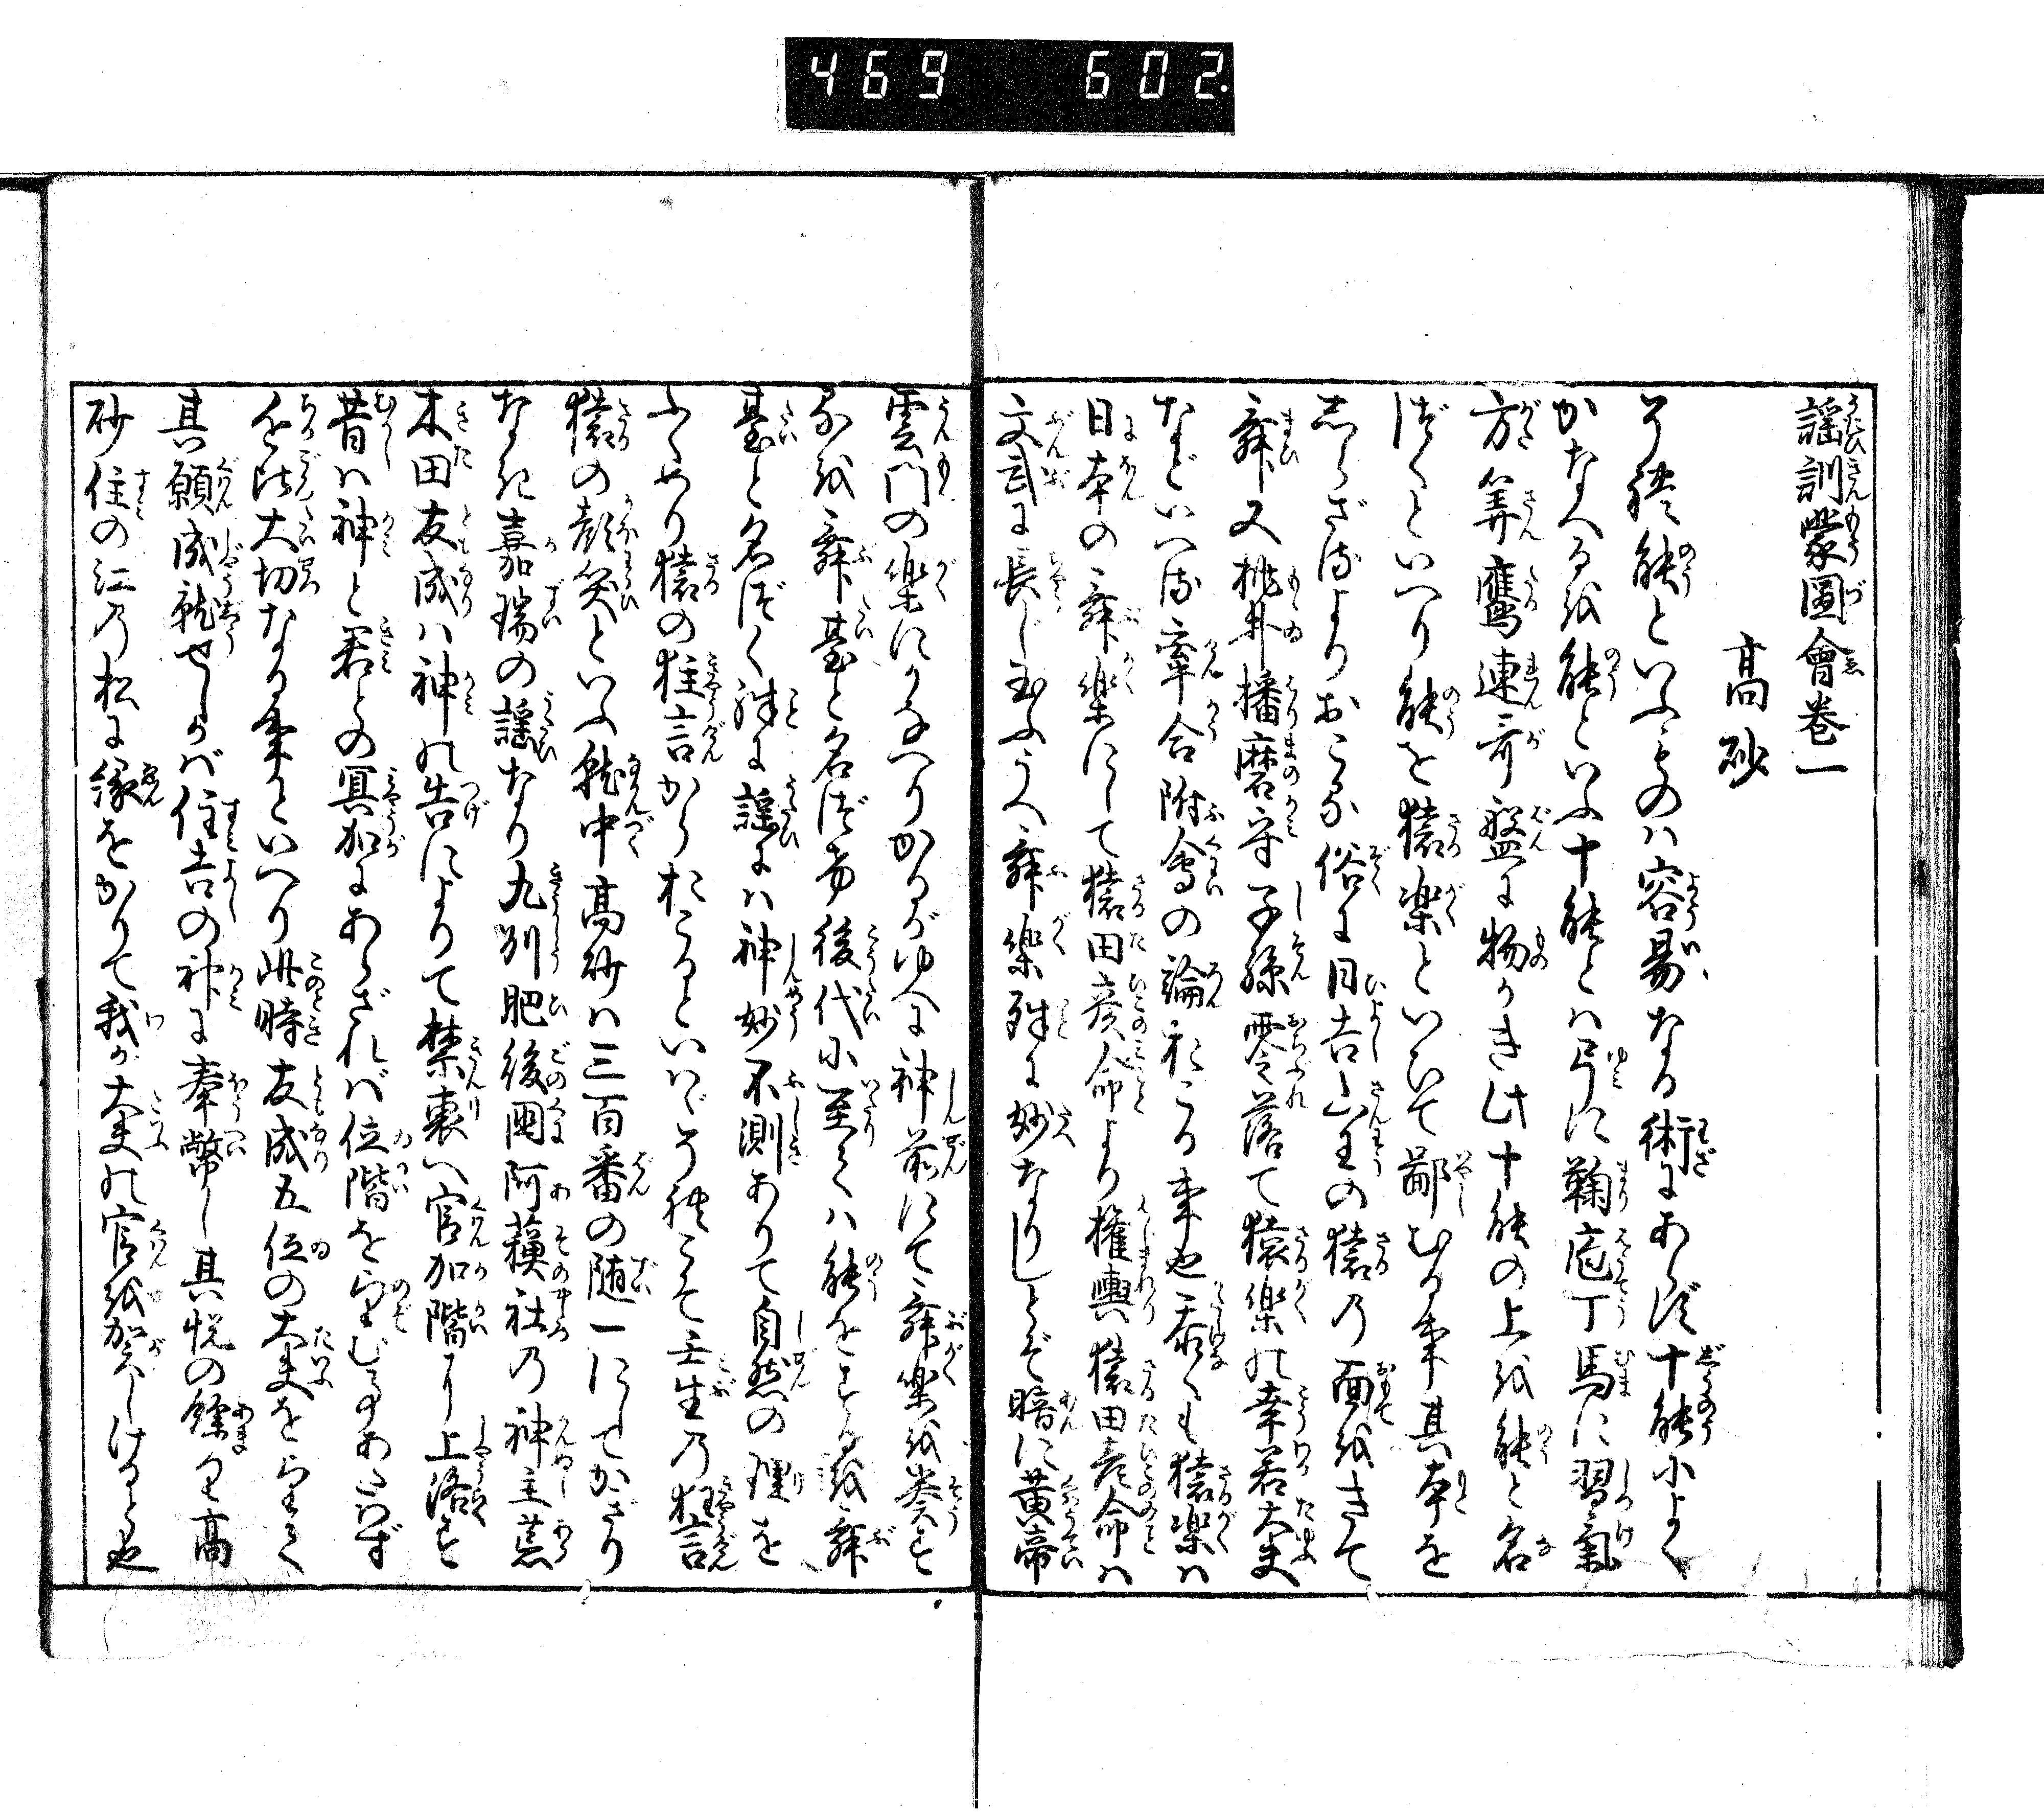 469 602.
謡訓蒙圖會巻一
高砂
夫能といふものハ容易なる術にあらず十能によく
かなへるを能といふ十能とハ弓に鞠庖丁馬に習氣
方筭鷹連哥盤に物かき此十能の上を能と名
づくといへり能を猿楽といひて鄙むる事其本を
しらざるよりおこる俗に日吉山王の猿の面をきて
舞又桃井播磨守子孫零落て猿楽の幸若大夫
などいへる牽合附會の論おこる事也忝くも猿楽ハ
日本の舞楽にして猿田彦命より権輿猿田彦命ハ
文武に長じ玉ふうへ舞楽殊に妙なりしとぞ暗に黄帝
雲門の楽にかなへりかるがゆへに神前にて舞楽を奏す
るを舞臺と名づけ後代に至てハ能をするを舞
臺と名づく殊に謡にハ神妙不測ありて自然の理を
ふくめり猿の狂言からおこるといはゞ夫こそ壬生の狂言
猿の顔笑といふ就中高砂ハ三百番の随一にしてかぎり
なき嘉瑞の謡なり九州肥後国阿蘓社の神主荒
木田友成ハ神の告によりて禁裏へ官加階に上洛す
昔ハ神と君との冥加にあらざれバ位階をのぞむ事あたはず
至極大切なる事といへり此時友成五位の大夫をのぞみて
其願成就せしかバ住吉の神に奉幣し其悦の餘りに高
砂住の江の松に縁をかりて我が大夫の官を賀しける也